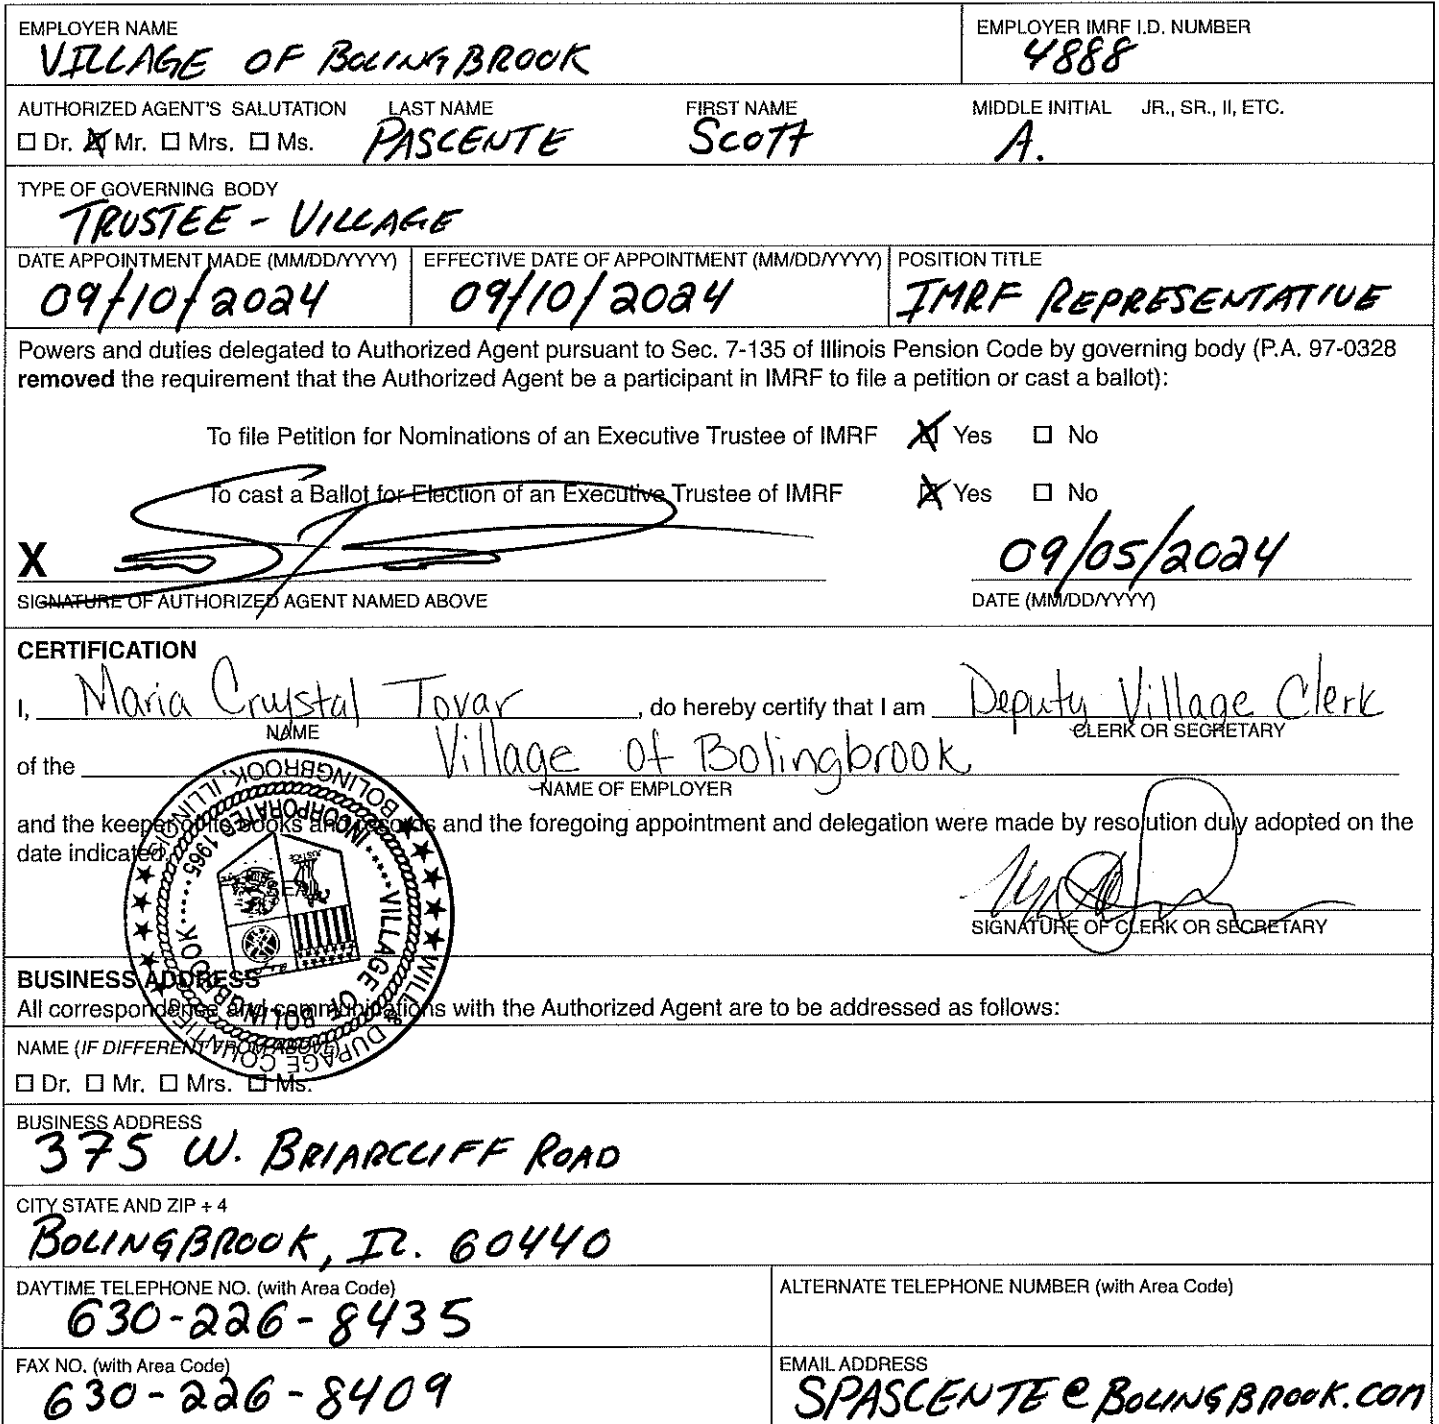 EMPLOYER NAME EMPLOYER IMRF I.D. NUMBER
VILLAGE OF BOLINGBROOK 4888
AUTHORIZED AGENT'S SALUTATION LAST NAME FIRST NAME MIDDLE INITIAL JR., SR., II, ETC.
☐ Dr. ☒ Mr. ☐ Mrs. ☐ Ms. PASCENTE SCOTT A.
TYPE OF GOVERNING BODY
TRUSTEE - VILLAGE
DATE APPOINTMENT MADE (MM/DD/YYYY) EFFECTIVE DATE OF APPOINTMENT (MM/DD/YYYY) POSITION TITLE
09/10/2024 09/10/2024 IMRF REPRESENTATIVE
Powers and duties delegated to Authorized Agent pursuant to Sec. 7-135 of Illinois Pension Code by governing body (P.A. 97-0328
removed the requirement that the Authorized Agent be a participant in IMRF to file a petition or cast a ballot):
To file Petition for Nominations of an Executive Trustee of IMRF ☒ Yes ☐ No
To cast a Ballot for Election of an Executive Trustee of IMRF ☒ Yes ☐ No
X 09/05/2024
SIGNATURE OF AUTHORIZED AGENT NAMED ABOVE DATE (MM/DD/YYYY)
CERTIFICATION
I, Maria Crystal Tovar, do hereby certify that I am Deputy Village Clerk
NAME CLERK OR SECRETARY
of the Village of Bolingbrook
NAME OF EMPLOYER
and the keeper of its books and records and the foregoing appointment and delegation were made by resolution duly adopted on the
date indicated.
SEAL
VILLAGE OF BOLINGBROOK
INCORPORATED 1965
WILL & DUPAGE COUNTIES
BOLINGBROOK, ILLINOIS
SIGNATURE OF CLERK OR SECRETARY
BUSINESS ADDRESS
All correspondence and communications with the Authorized Agent are to be addressed as follows:
NAME (IF DIFFERENT FROM ABOVE)
☐ Dr. ☐ Mr. ☐ Mrs. ☐ Ms.
BUSINESS ADDRESS
375 W. BRIARCLIFF ROAD
CITY STATE AND ZIP + 4
BOLINGBROOK, IL. 60440
DAYTIME TELEPHONE NO. (with Area Code) ALTERNATE TELEPHONE NUMBER (with Area Code)
630-226-8435
FAX NO. (with Area Code) EMAIL ADDRESS
630-226-8409 SPASCENTE@BOLINGBROOK.COM